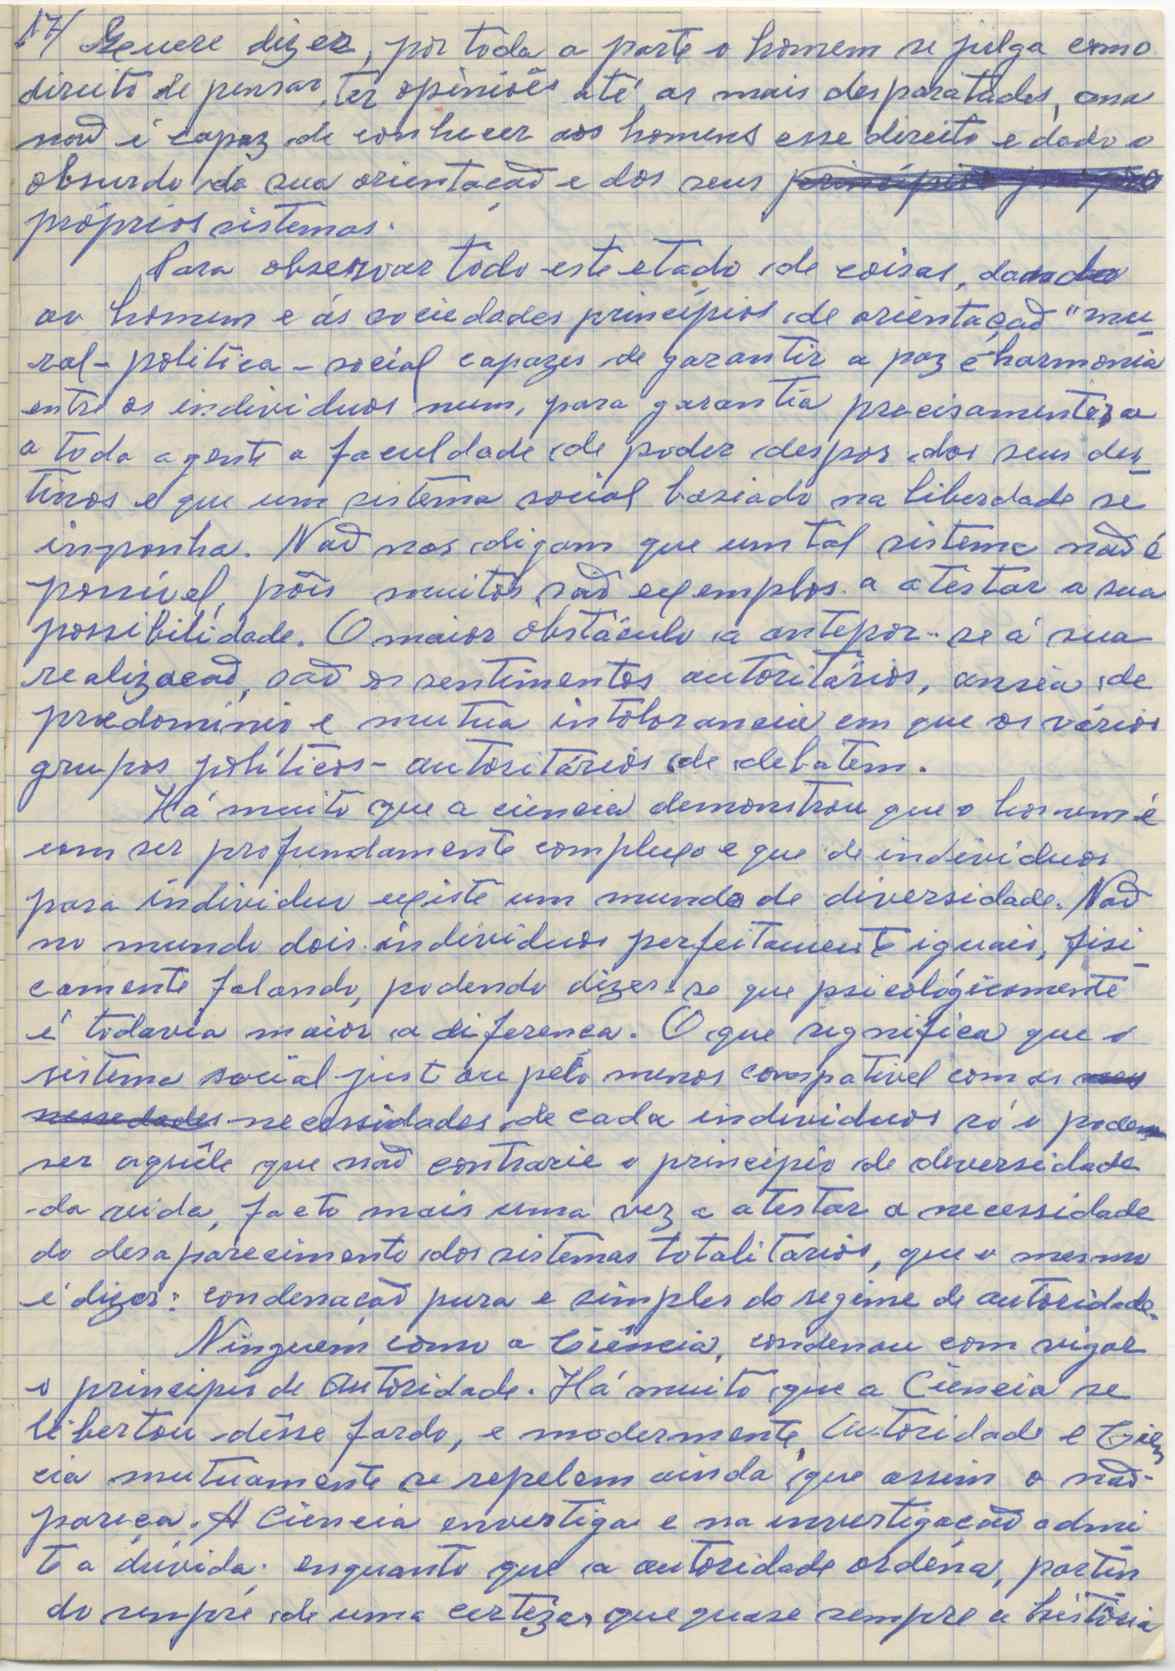 17/ Quere dizer, por toda a parte o homem se julga com o
direito de pensar, ter opiniões até as mais desparatadas, mas
não é capaz de conhecer aos homens esse dereito e dado o
absurdo da sua orientação e dos seus
próprios sistemas.
Para observar todo este etado de coisas, dando
ao homem e ás sociedades princípios de orientação "mu-
ral-politica-social capazes de garantir a paz e harmonia
entre os individuos num, para garantia precisamente, a
a toda agente a faculdade de poder despor dos seus des-
tinos e que um sistema social basiado na liberdade se
imponha. Não nos digam que um tal sistema não é
possível, pois muitos são exemplos a atestar a sua
possibilidade. O maior obstáculo a antepor-se á sua
realizacão, são os sentimentos autoritários, anseia de
predominio e mutua intolorancia em que os vários
grupos políticos-autoritários de debatem.
Há muito que a ciencia demonstrou que o homem é
um ser profundamente complexo e que de individuos
para individuo existe um mundo de diversidade. Não
no mundo dois individuos perfeitamente iguais, fisi-
camente falando, podendo dizer-se que psicológicamente
é todavia maior a diferenca. O que significa que o
sistema social just ou pelo menos compativel com as
necessidades de cada individuos só o podem
ser aquêle que não contrarie o principio de diversidade
da vida, facto mais uma vez a atestar a necessidade
do desaparecimento dos sistemas totalitários, que o mesmo
é dizer: condenacão pura e simples do regime de autoridade.
Ninguem como a Ciência, condenou com vigor
o principio de autoridade. Há muito que a Ciencia se
libertou dêsse fardo, e modermente, Autoridade e Ciên
cia mutuamente se repelem ainda que assim o não-
pareça. A Ciencia envestiga e na investigação admi
te a dúvida; enquanto que a autoridade ordéna, partin
do sempre de uma certeza, que quase sempre a história